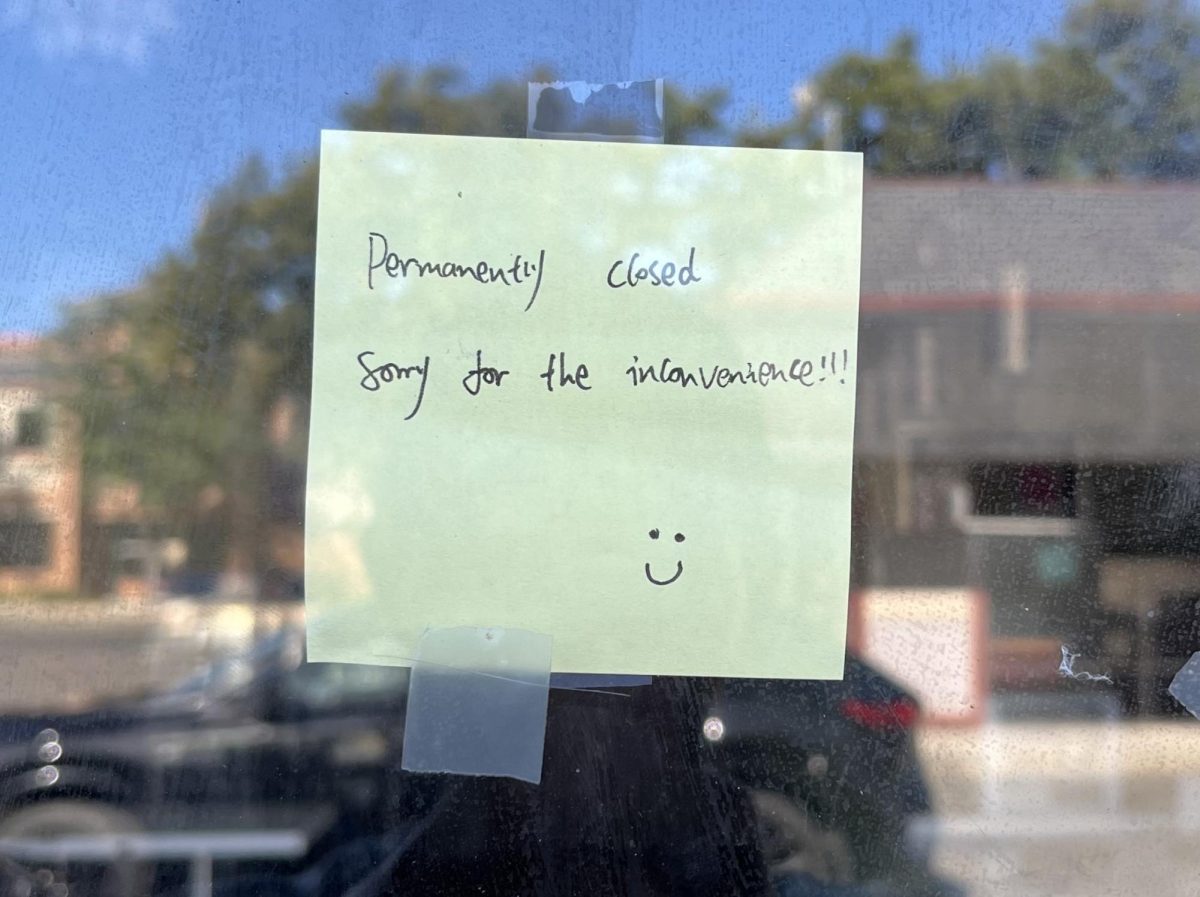 Permanently closed
Sorry for the inconvenience!!!